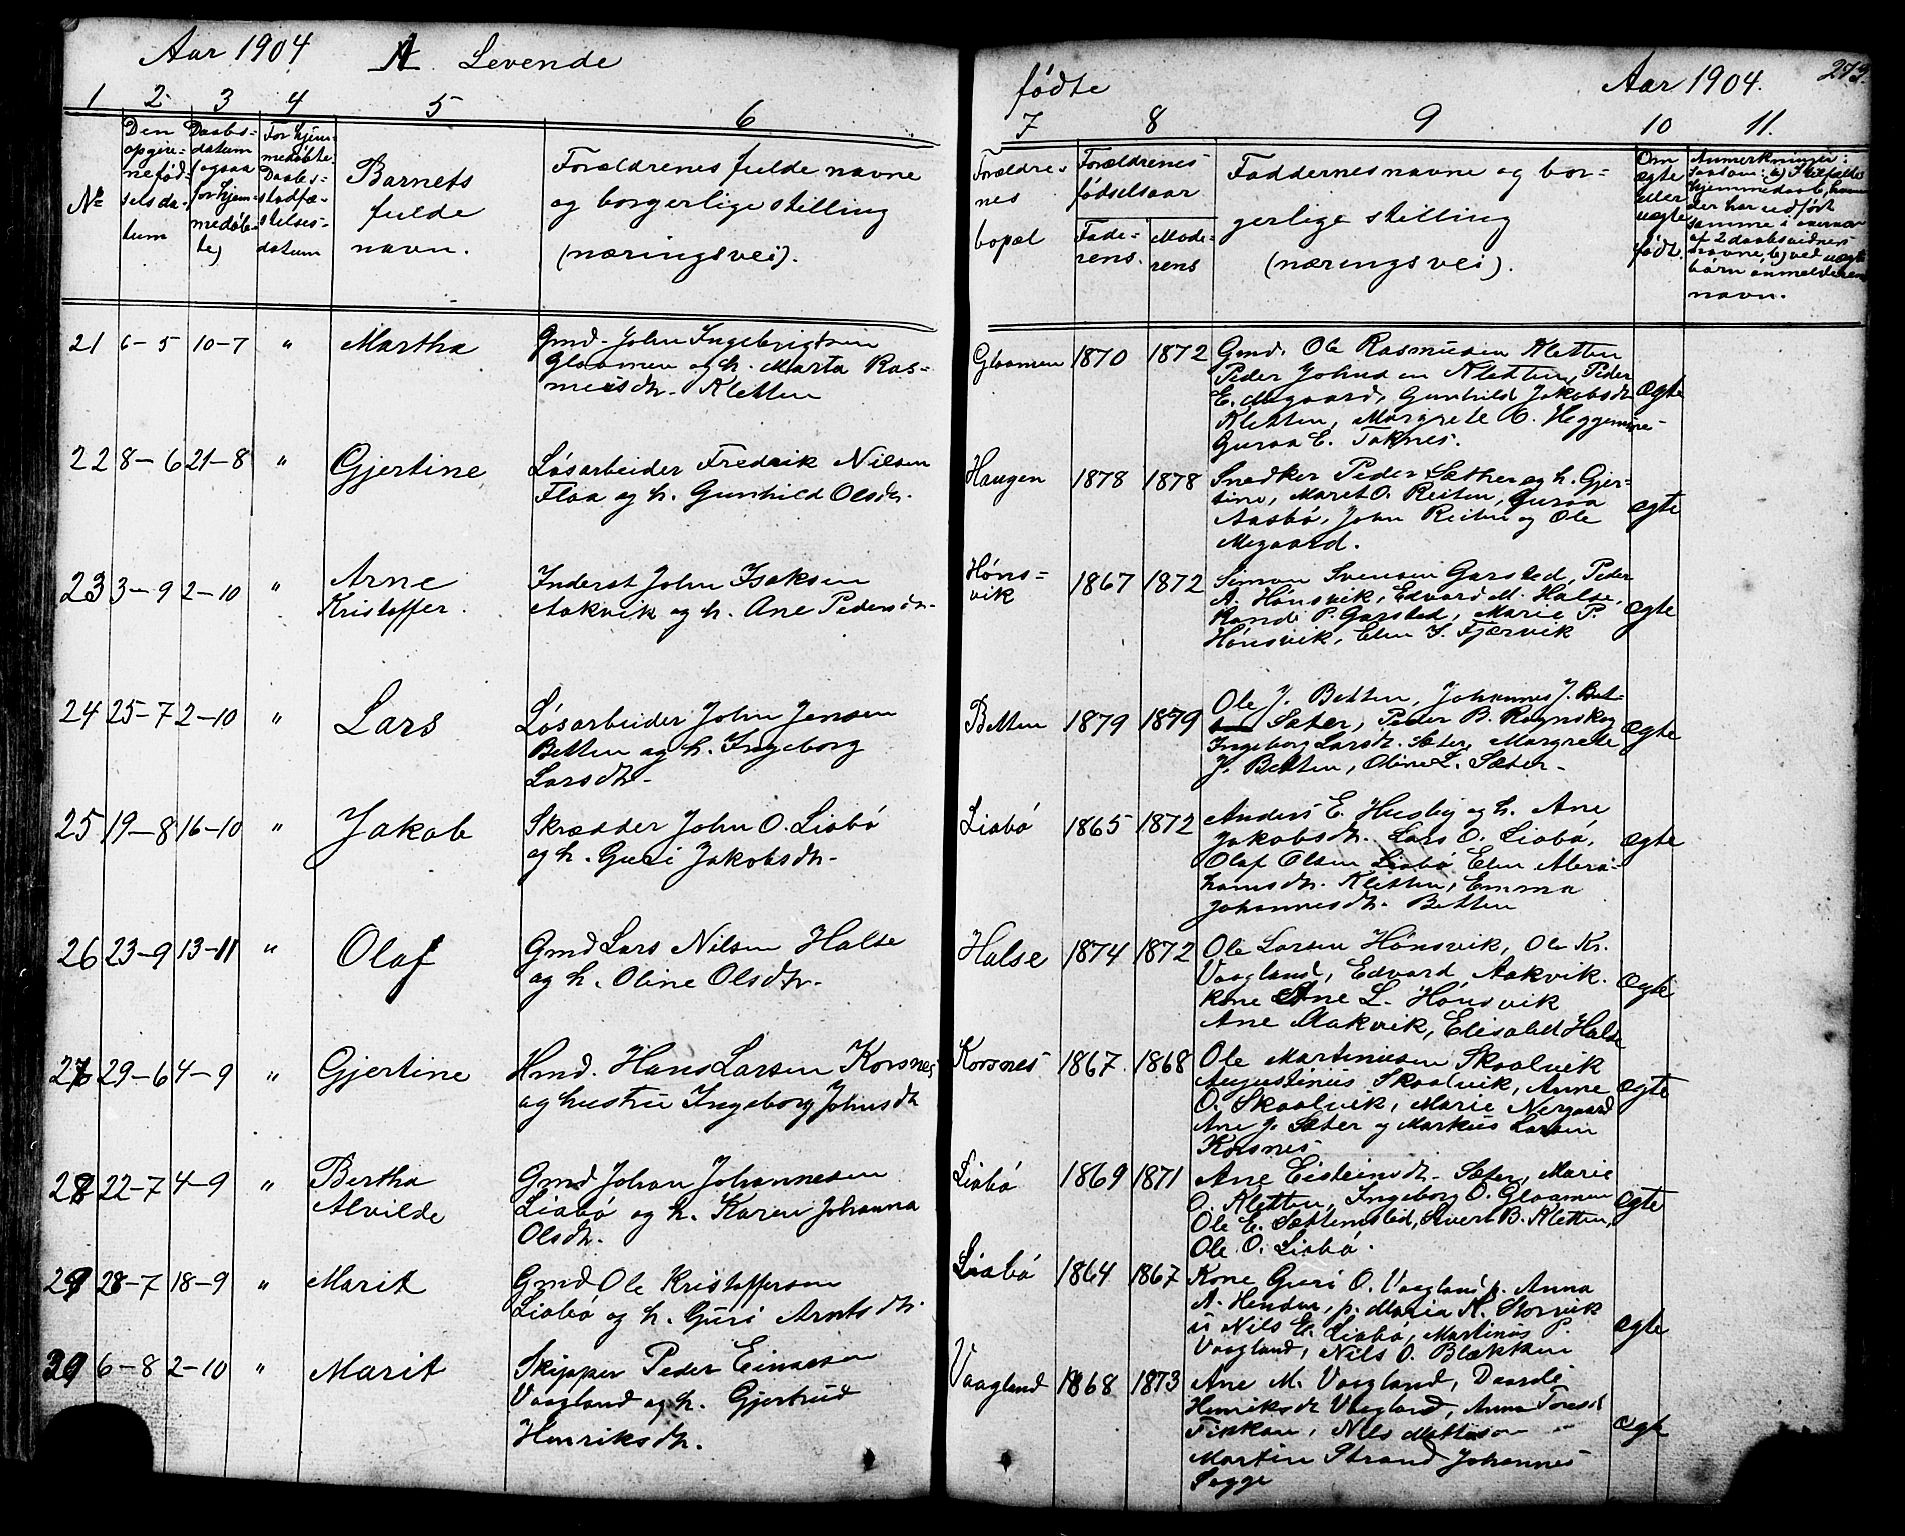 Aar 1904 A. Levende
1 2 3 4 5 6
№ Den opgivne fødselsdatum Daabsdatum (ogsaa for hjemmedøbte) For hjemmedøbte Daabsstadfæstelsesdatum Barnets fulde navn. Forældrenes fulde navne og borgerlige stilling (næringsvei).
21 6-5 10-7 " Martha Gmd. John Ingebrigtsen
Gloamen og h. Marta Ras=
musdtr. Kletten
22 8-6 21-8 " Gjertine Løsarbeider Fredrik Nilsen
Flaa og h. Gunhild Olsdtr.
23 3-9 2-10 " Arne Inderst John Isaksen
Kristoffer. Aakvik og h. Ane Pedersdtr.
24 25-7 2-10 " Lars Løsarbeider John Jensen
Betten og h. Ingeborg
Larsdtr.
25 19-8 16-10 " Jakob Skrædder John O. Liabø
og h. Guri Jakobsdtr.
26 23-9 13-11 " Olaf Gmd Lars Nilsen Halse
og h. Oline Olsdtr.
27 29-6 4-9 " Gjertine Hmd. Hans Larsen Korsnes
og hustru Ingeborg Johnsdtr
28 22-7 4-9 " Bertha Gmd Johan Johannesen
Alvilde Liabø og h. Karen Johanna
Olsdtr.
29 28-7 18-9 " Marit Gmd Ole Kristoffersen
Liabø og h. Guri Arntsdtr.
30 6-8 2-10 " Marit Skipper Peder Einarsen
Vaagland og h. Gjertrud
Henriksdtr.
fødte Aar 1904. 273.
7 8 9 10 11.
Forældrenes bopæl Forældrenes fødselsaar Faderens. Moderens Faddernes navne og borgerlige stilling (næringsvei). Om ægte eller uægte født. Anmerkninger: saasom: a) I tilfælde hjemmedaab, hvem der har udført samme i overvær af 2 daabsvidners navne, b) ved uægte børn anmelderens navn.
Gloamen 1870 1872 Gmd. Ole Rasmusen Kletten
Peder Johnsen Kletten, Peder
E. Megaard, Gunhild Jakobsdtr ægte
Kletten, Margrete O. Heggem
Guraa E. Taknes.
Haugen 1878 1878 Snedker Peder Sæther og h. Gjer=
tine, Maret O. Reiten, Guraa
Aasbø, John Reiten og Ole ægte
Megaard.
Høns=
vik 1867 1872 Simon Svensen Garsted, Peder
A. Hønsvik, Edvard M. Halse,
P. Garsted, Marie P. ægte
Hønsvik, Elen I. Fjærvik
Betten 1879 1879 Ole J. Betten, Johannes J. Bet-
Sæter, Peder B. Rognskog ægte
Ingeborg Larsdtr. Sæter, Margrete
J. Betten, Oline L. Sæter.
Liabø 1865 1872 Anders E. Husby og h. Ane
Jakobsdtr. Lars O. Liabø, ægte
Olaf Olsen Liabø Elen Abra=
hamsdtr. Kletten, Emma
Johannesdtr. Betten
Halse 1874 1872 Ole Larsen Hønsvik, Ole Kr.
Vaagland, Edvard Aakvik. ægte
kone Ane L. Hønsvik
Ane Aakvik, Elisabet Halse
Korsnes 1867. 1868 Ole Martinusen Skaalvik
Augustinus Skaalvik, Anne ægte
O. Skaalvik, Marie Nergaard
Ane J. Sæter og Markus Larsen
Korsnes
Liabø 1869 1871 Ane Eisteinsdtr. Sæter, Marie
O. Kletten, Ingeborg O. Gloamen ægte
Ole E. Sættemslid, Sivert B. Kletten,
Ole O. Liabø.
Liabø 1864 1867 Kone Guri O. Vaagland p. Anna
A. Henden, p. Maria K. Storvik
u Nils E. Liabø, Martinus P. ægte
Vaagland, Nils O. Blækken
Vaagland 1868 1873 Ane M. Vaagland, Daardi
Henriksdtr Vaagland, Anna Toresdtr
Finkan, Nils Mattison ægte
Martin Strand Johannes
Segge